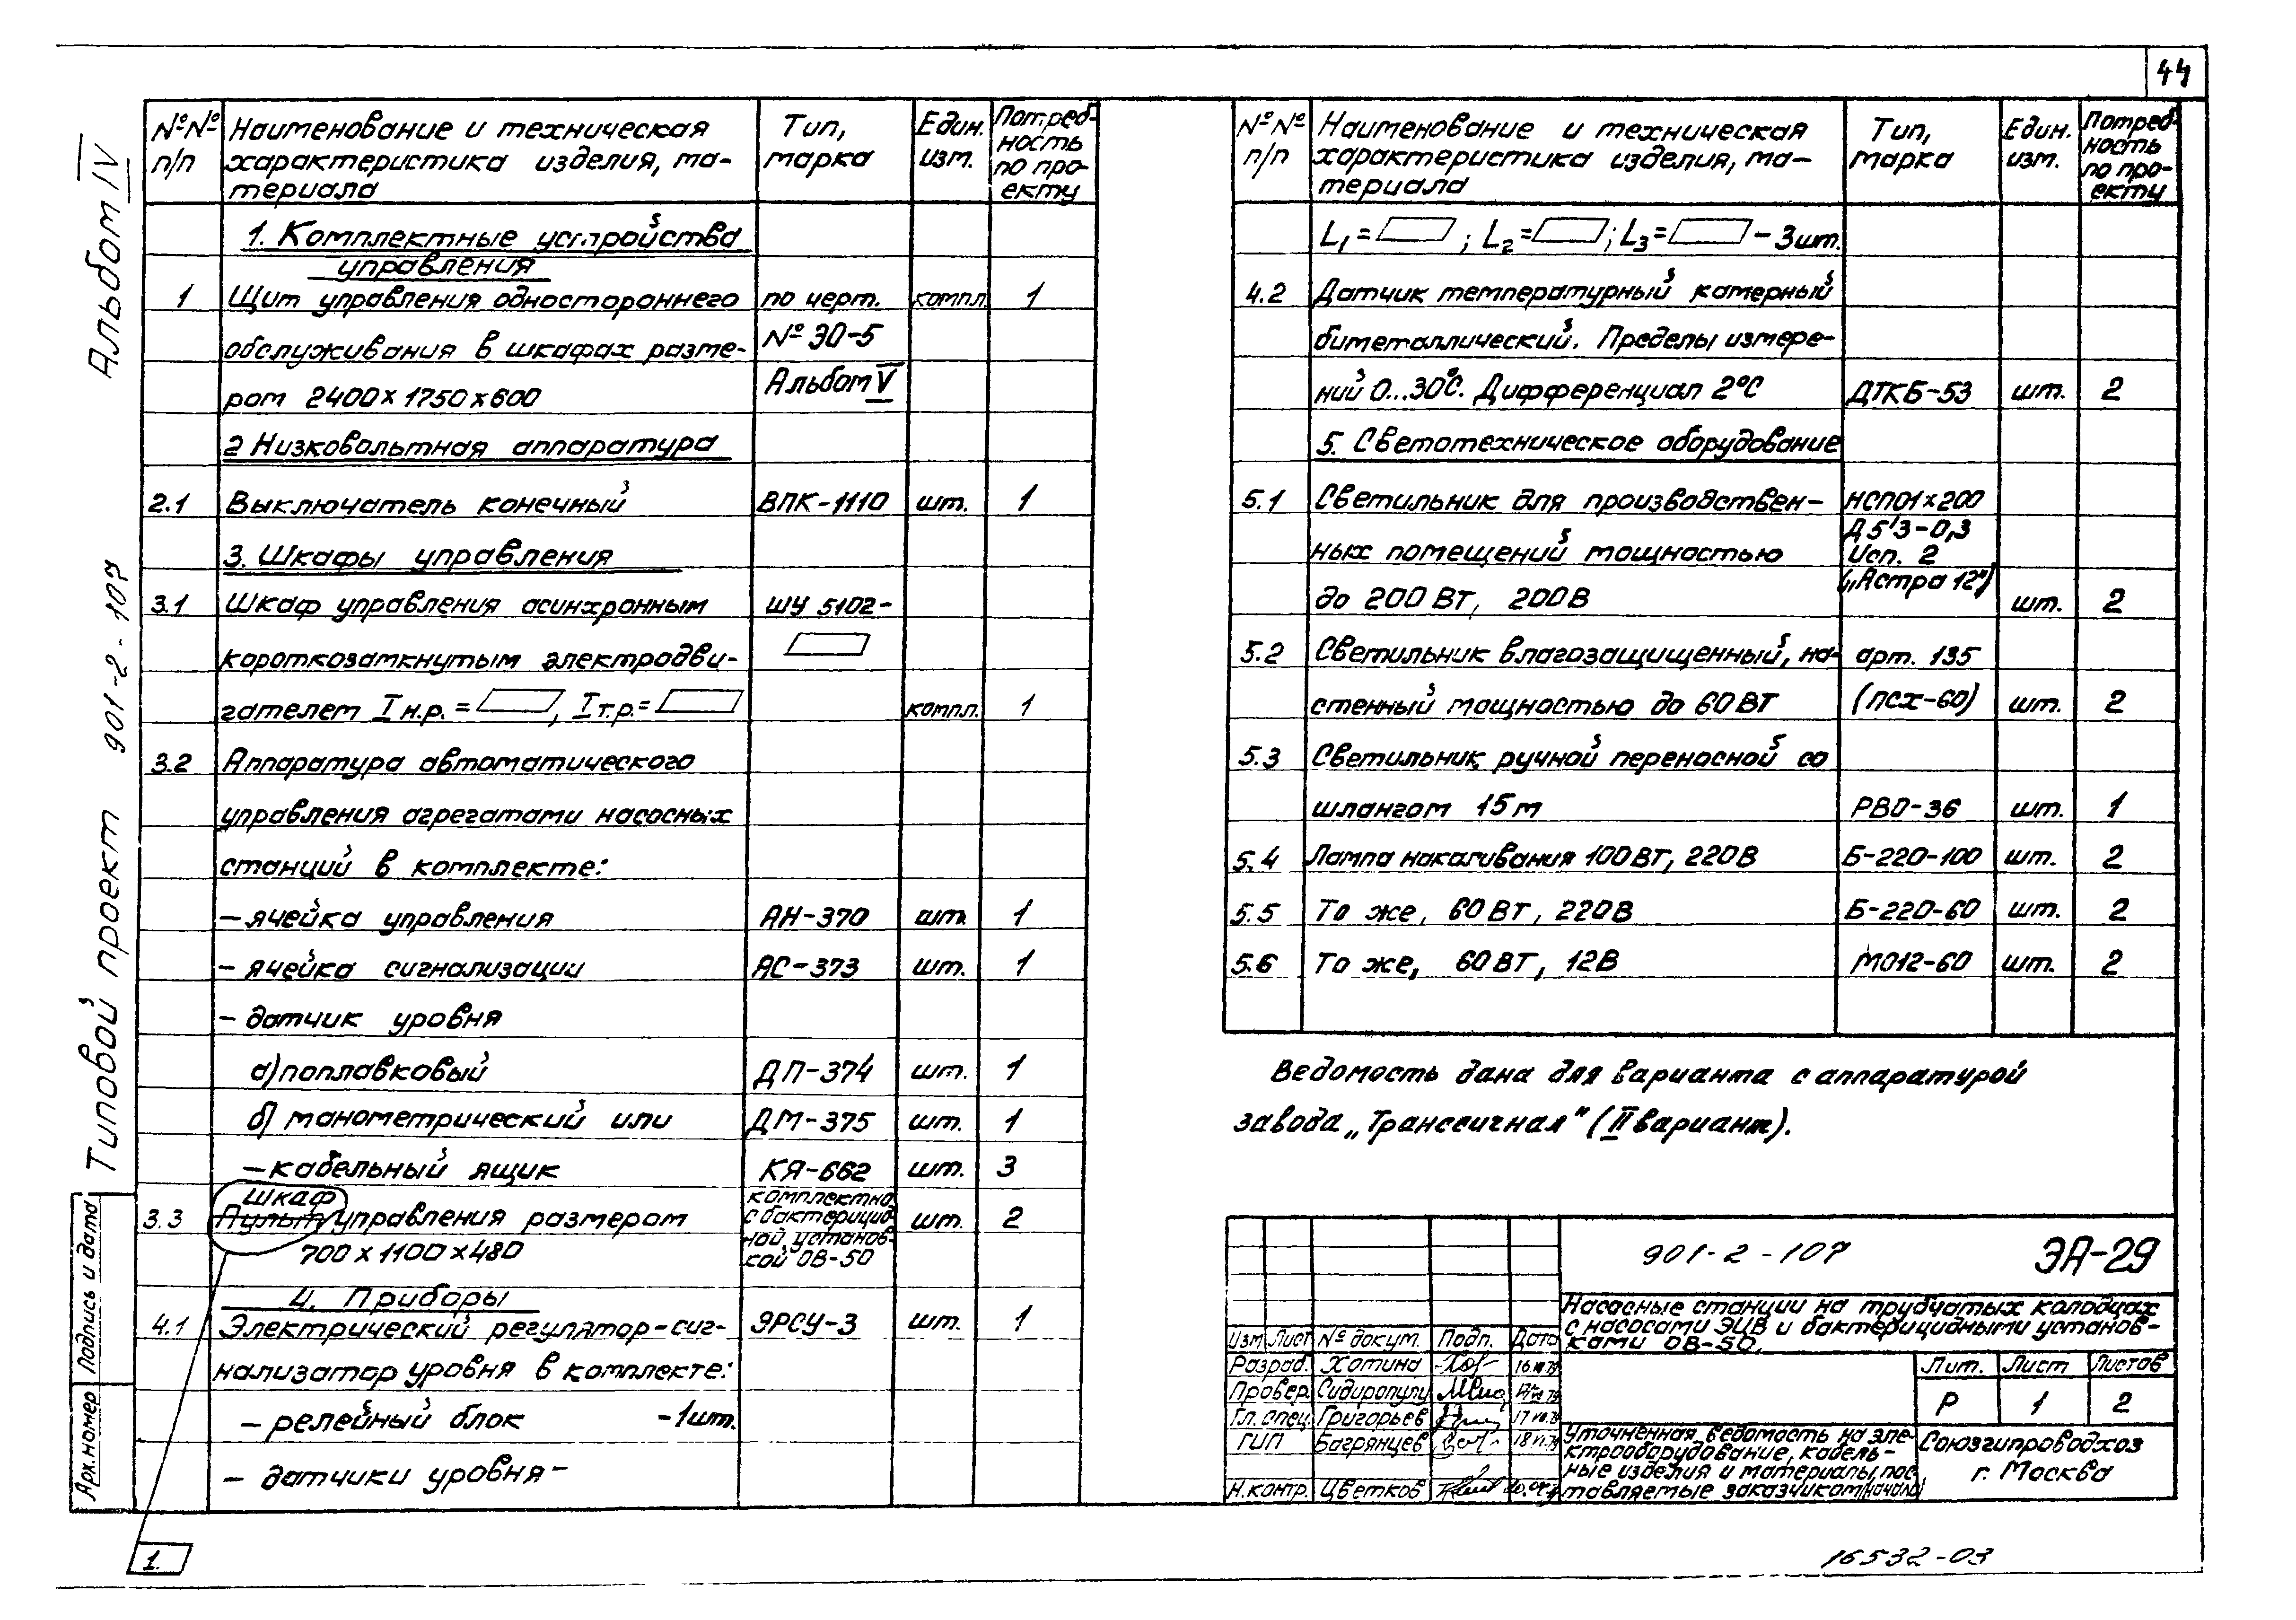 44
Альбом IV
Типовой проект 901-2-107
Подпись и дата
Арх.номер
№№ п/п
Наименование и техническая
характеристика изделия, ма-
териала
Тип,
марка
Един.
изм.
Потреб-
ность
по про-
екту
1. Комплектные устройства
управления
1 Щит управления одностороннего по черт. компл. 1
обслуживания в шкафах разме- №ЭО-5
ром 2400х1750х600 Альбом V
2 Низковольтная аппаратура
2.1 Выключатель конечный ВПК-1110 шт. 1
3. Шкафы управления
3.1 Шкаф управления асинхронным ШУ 5102-
короткозамкнутым электродви-
гателем Iн.р. = , Iт.р.= компл. 1
3.2 Аппаратура автоматического
управления агрегатами насосных
станций в комплекте:
- ячейка управления АН-370 шт. 1
- ячейка сигнализации АС-373 шт. 1
- датчик уровня
а) поплавковый ДП-374 шт. 1
б) манометрический или ДМ-375 шт. 1
- кабельный ящик КЯ-662 шт. 3
Шкаф
3.3 Пульт управления размером шт. 2
700х1100х480
комплектно
с бактерицид-
ной установ-
кой ОВ-50
4. Приборы
4.1 Электрический регулятор-сиг- ЭРСУ-3 шт. 1
нализатор уровня в комплекте:
- релейный блок -1шт.
- датчики уровня-
1.
№№ п/п
Наименование и техническая
характеристика изделия, ма-
териала
Тип,
марка
Един.
изм.
Потреб-
ность
по про-
екту
L1= ; L2= ; L3= - 3шт.
4.2 Датчик температурный камерный
биметаллический. Пределы измере-
ний 0...30°С. Дифференциал 2°С ДТКБ-53 шт. 2
5. Светотехническое оборудование
5.1 Светильник для производствен- НСП01х200
ных помещений мощностью Д5'3-0,3
Исп. 2
("Астра 12")
до 200 Вт, 200В шт. 2
5.2 Светильник влагозащищенный, на- арт. 135
стенный мощностью до 60 Вт (ПСХ-60) шт. 2
5.3 Светильник ручной переносной со
шлангом 15 м РВО-36 шт. 1
5.4 Лампа накаливания 100 Вт, 220В Б-220-100 шт. 2
5.5 То же, 60 Вт, 220В Б-220-60 шт. 2
5.6 То же, 60 Вт, 12В МО12-60 шт. 2
Ведомость дана для варианта с аппаратурой
завода „Транссигнал" (II вариант).
901-2-107 ЭА-29
Насосные станции на трубчатых колодцах
с насосами ЭЦВ и бактерицидными установ-
ками ОВ-50.
Изм Лист № докум. Подп. Дата
Разраб. Хотина
Провер. Сидиропулу
Гл. спец. Григорьев
ГИП Багрянцев
Н.контр. Цветков
Лит. Лист Листов
Р 1 2
Уточненная ведомость на эле-
ктрооборудование, кабель-
ные изделия и материалы, пос-
тавляемые заказчиком (начало)
Союзгипроводхоз
г. Москва
16532-03